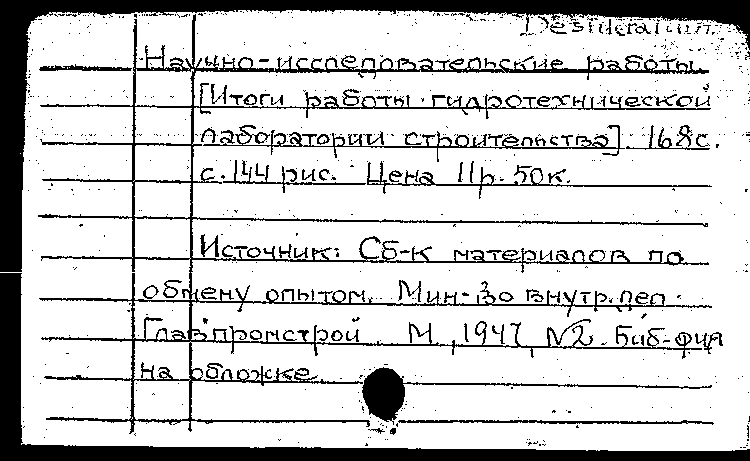 Desideratum
Научно-исследовательские работы
[Итоги работы гидротехнической
лаборатории строительства]. 168с.
с.144 рис. Цена 11р.50к.
Источник: Сб-к материалов по
обмену опытом. Мин-во внутр.дел.
Главпромстрой. М., 1947, №2. Биб-фия
на обложке.